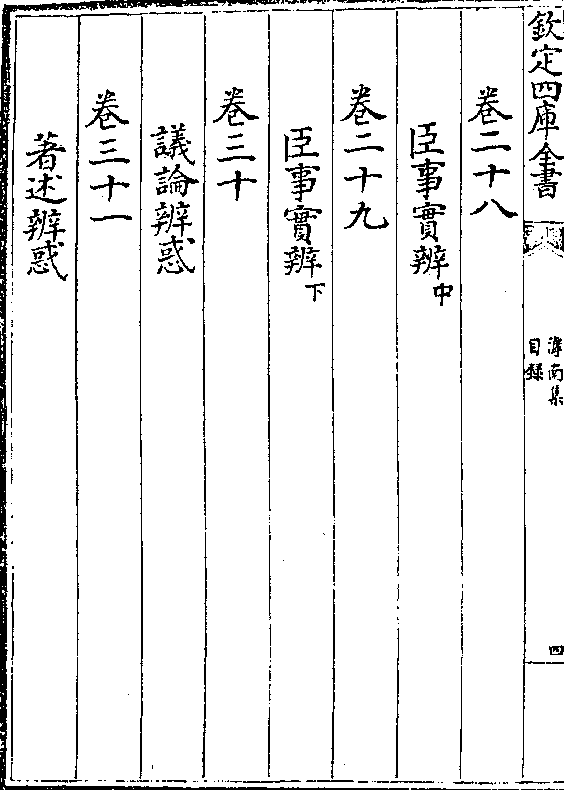 欽定四庫全書
滹南集
目録
四
卷二十八
臣事實辨中
卷二十九
臣事實辨下
卷三十
議論辨惑
卷三十一
著述辨惑